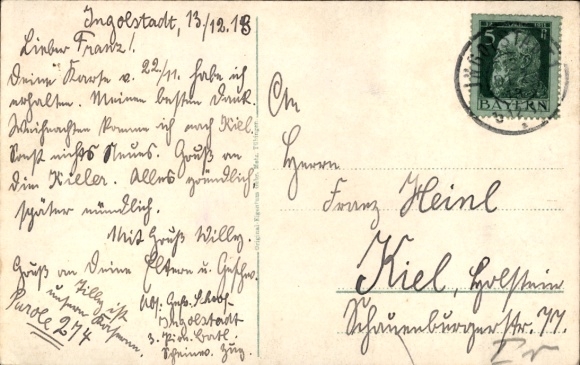 Ingolstadt, 13/12.13
Lieber Franz!
Deine Karte v. 22/11. habe ich
erhalten. Meinen besten Dank.
Weihnachten komme ich nach Kiel.
Sonst nichts Neues. Gruß an
die Kieler. Alles gründlich
später mündlich.
Mit Gruß Willy.
Gruß an Deine Eltern u. Geschw.
Tilly ist
unsere
Parole 274
Abs: Gefr.
Ingolstadt
3. Pion. Batl.
Scheinw. Zug.
An
Herrn
Franz Heinl
Kiel, Holstein
Schauenburgerstr. 77.
5
BAYERN